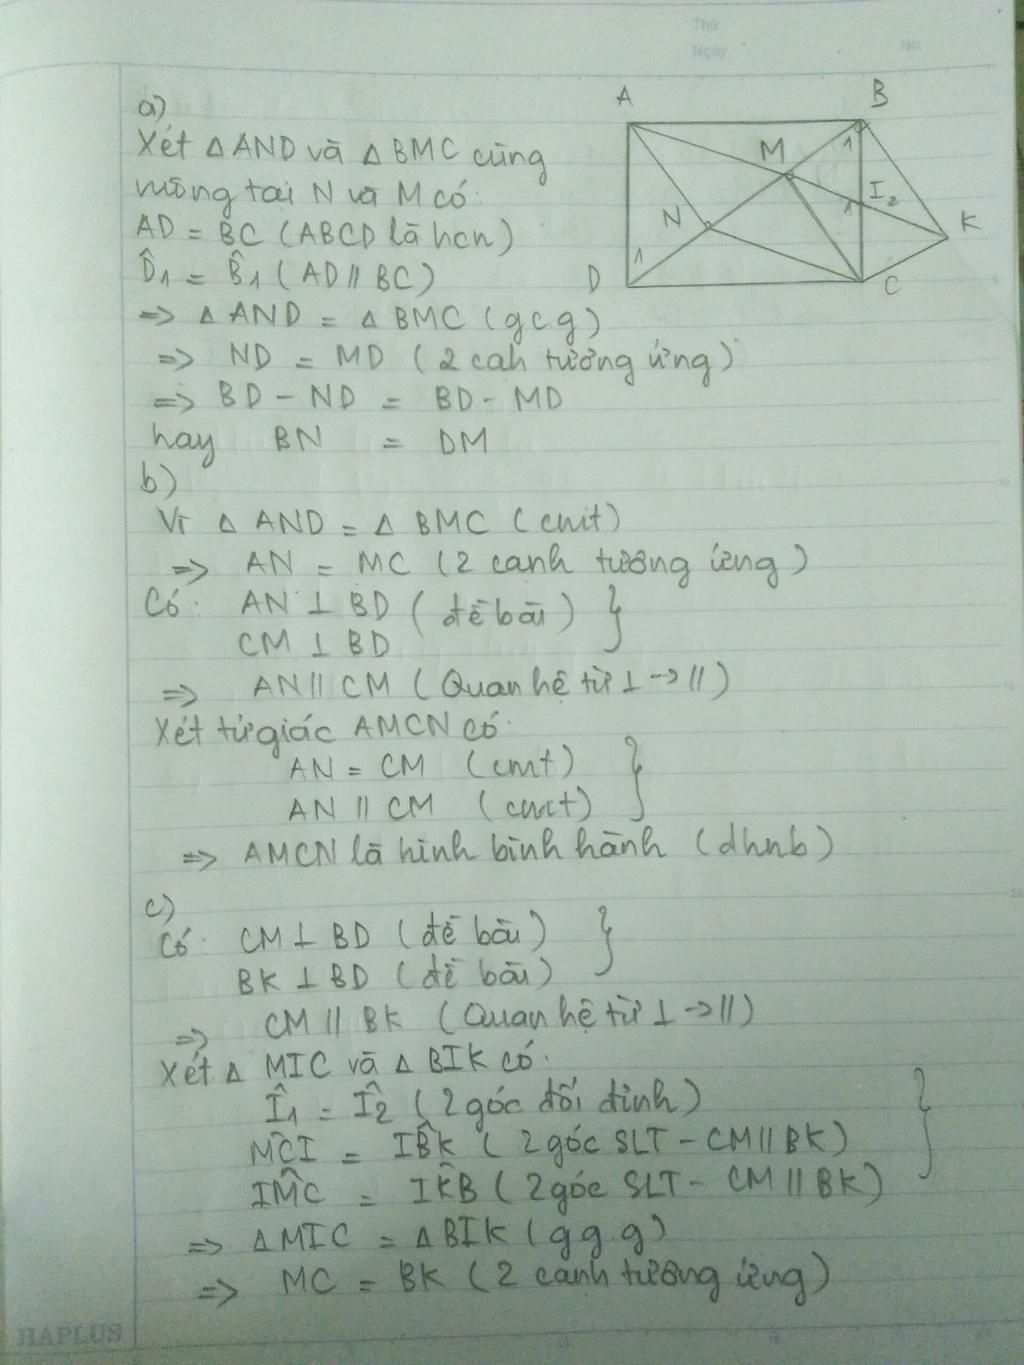 Thứ
Ngày
No.
a)
Xét △AND và △BMC cùng
vuông tại N và M có:
AD = BC (ABCD là hcn)
D̂1 = B̂1 (AD // BC)
=> △ AND = △ BMC (g c g)
=> ND = MD (2 cah tương ứng)
=> BD - ND = BD - MD
hay BN = DM
b)
Vì △ AND = △ BMC (cmt)
=> AN = MC (2 canh tương ứng)
Có: AN ⊥ BD (đề bài) }
CM ⊥ BD
=> AN // CM (Quan hệ từ ⊥ -> //)
Xét tứ giác AMCN có:
AN = CM (cmt) }
AN // CM (cmt)
=> AMCN là hình bình hành (dhnb)
c)
Có: CM ⊥ BD (đề bài) }
BK ⊥ BD (đề bài)
=> CM // BK (Quan hệ từ ⊥ -> //)
Xét △ MIC và △ BIK có:
Î1 = Î2 (2 góc đối đỉnh) }
MĈI = IB̂K (2 góc SLT - CM // BK)
IM̂C = IK̂B (2 góc SLT - CM // BK)
=> △MIC = △BIK (g g.g)
=> MC = BK (2 canh tương ứng)
A
B
M
1
I2
1
N
K
1
D
C
HAPLUS